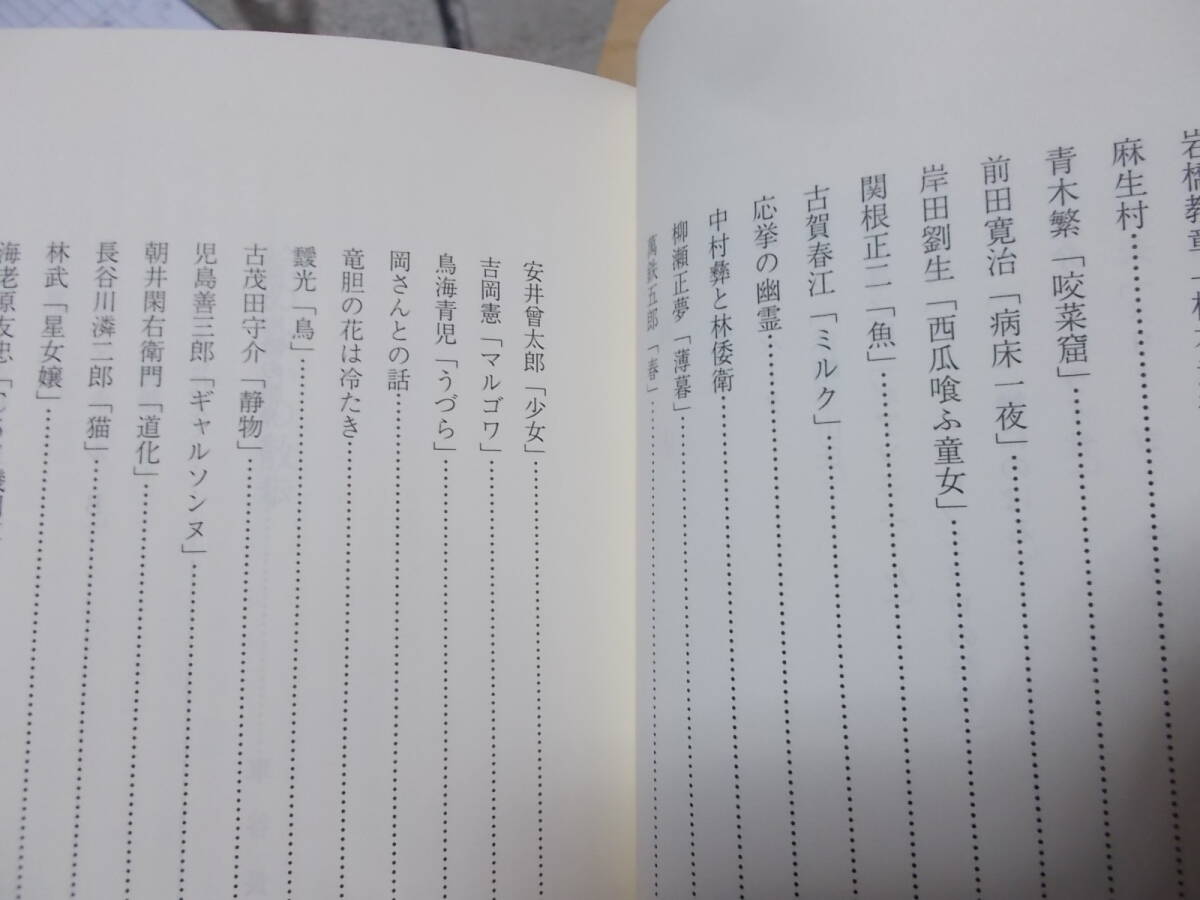 岩橋教章「
麻生村……………
青木繁「咬菜窟」……………
前田寛治「病床一夜」……………
岸田劉生「西瓜喰ふ童女」……………
関根正二「魚」……………
古賀春江「ミルク」……………
応挙の幽霊……………
中村彝と林倭衛……………
柳瀬正夢「薄暮」……………
萬鉄五郎「春」……………
安井曾太郎「少女」……………
吉岡憲「マルゴワ」……………
鳥海青児「うづら」……………
岡さんとの話……………
竜胆の花は冷たき……………
靉光「鳥」……………
古茂田守介「静物」……………
児島善三郎「ギャルソンヌ」……………
朝井閑右衛門「道化」……………
長谷川潾二郎「猫」……………
林武「星女嬢」……………
海老原友忠「